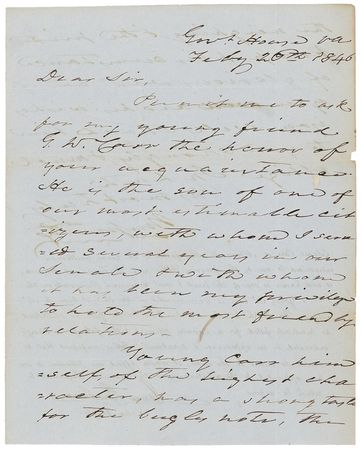 Govt. House Va
Feby 20th 1846
Dear Sir,
Permit me to ask
for my young friend
G. W. Carr the honor of
your acquaintance.
He is the son of one of
our most estimable cit
=izens, with whom I serv
=ed several years in our
Senate & with whom
it has been my privilege
to hold the most friendly
relations.
Young Carr him
=self, of the highest cha
=racter, has a strong taste
for the bugle note, the